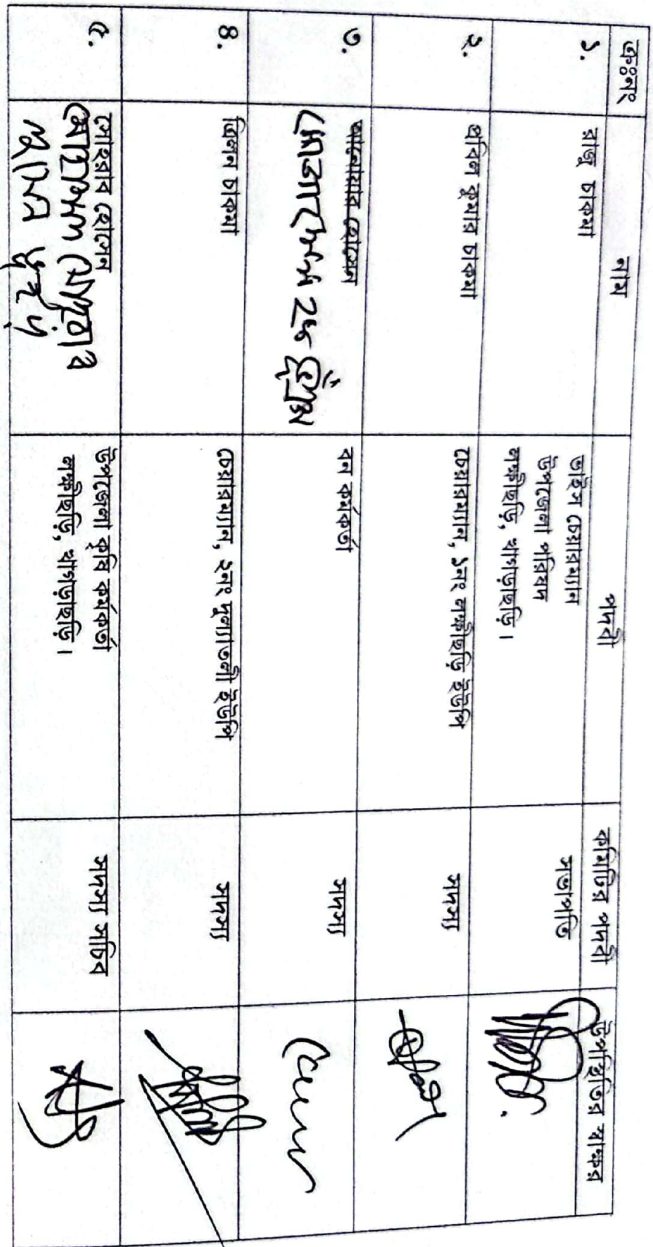 ক্রঃনং নাম পদবী কমিটির পদবী উপস্থিতির স্বাক্ষর
১. রাজু চাকমা ভাইস চেয়ারম্যান
উপজেলা পরিষদ
লক্ষীছড়ি, খাগড়াছড়ি। সভাপতি
২. প্রবিল কুমার চাকমা চেয়ারম্যান, ১নং লক্ষীছড়ি ইউপি সদস্য
৩. আনোয়ার হোসেন বন কর্মকর্তা সদস্য
৪. ত্রিলন চাকমা চেয়ারম্যান, ২নং দুল্যাতলী ইউপি সদস্য
৫. সোহরাব হোসেন উপজেলা কৃষি কর্মকর্তা
লক্ষীছড়ি, খাগড়াছড়ি। সদস্য সচিব